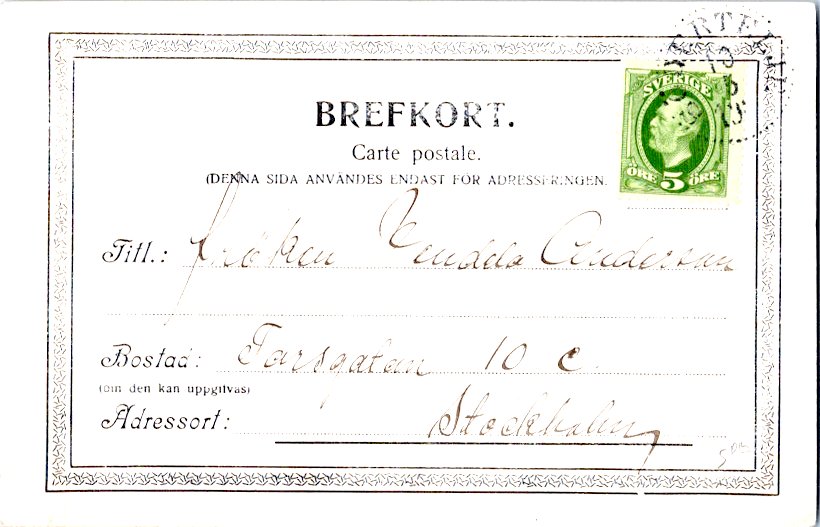 BREFKORT.
Carte postale.
(DENNA SIDA ANVÄNDES ENDAST FÖR ADRESSERINGEN.
SVERIGE
ÖRE 5 ÖRE
Titl.: Fröken Vendela Andersson
Bostad: Torsgatan 10 c
(om den kan uppgifvas)
Adressort: Stockholm